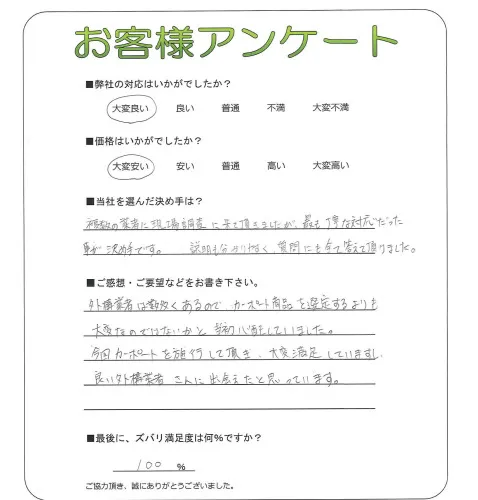 お客様アンケート
■弊社の対応はいかがでしたか？
大変良い 良い 普通 不満 大変不満
■価格はいかがでしたか？
大変安い 安い 普通 高い 大変高い
■当社を選んだ決め手は？
複数の業者に現場調査に来て頂きましたが、最も丁寧な対応だった
事が決め手です。 説明も分かりやすく、質問にも全て答えて頂けました。
■ご感想・ご要望などをお書き下さい。
外構業者は数多くあるので、カーポート商品を選定するよりも
大変なのではないかと当初心配していました。
今回カーポートを施行して頂き、大変満足していますし、
良い外構業者さんに出会えたと思っています。
■最後に、ズバリ満足度は何％ですか？
100 ％
ご協力頂き、誠にありがとうございました。